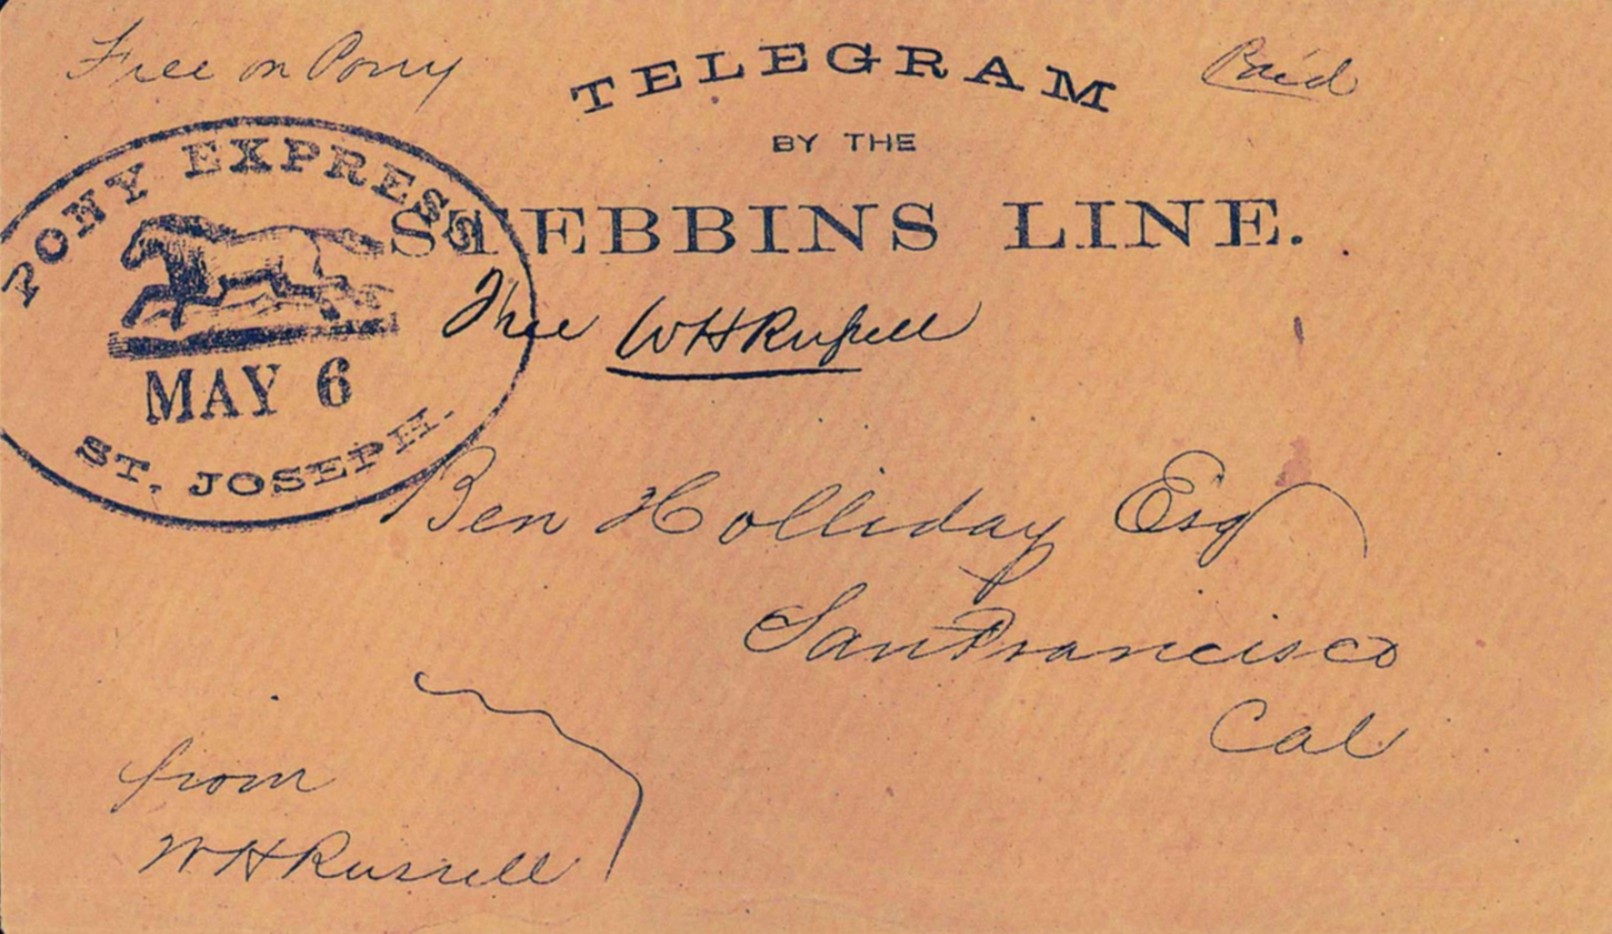 Free on Pony
Paid
TELEGRAM
BY THE
STEBBINS LINE.
PONY EXPRESS
MAY 6
ST. JOSEPH.
Free WHRussell
Ben Holliday Esq
San Francisco
Cal
from
WHRussell